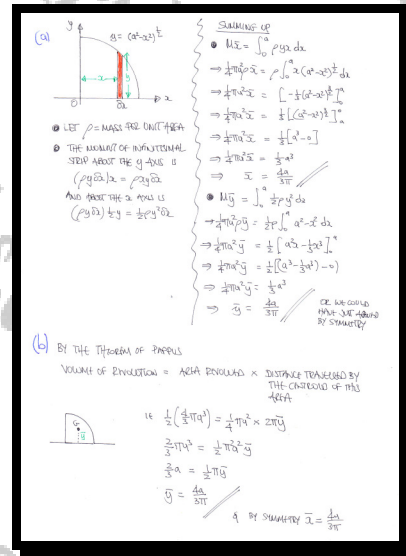 (a)
y
y = (a²-x²)^½
x
y
0
δx
x
● LET ρ = MASS PER UNIT AREA
● THE MOMENT OF INFINITESIMAL
STRIP ABOUT THE y AXIS IS
(ρyδx)x = ρxyδx
AND ABOUT THE x AXIS IS
(ρyδx)½y = ½ρy²δx
SUMMING UP
● Mx̄ = ∫₀ᵃ ρyx dx
⇒ ¼πa²ρx̄ = ρ∫₀ᵃ x(a²-x²)^½ dx
⇒ ¼πa²x̄ = [-⅓(a²-x²)^(3/2)]₀ᵃ
⇒ ¼πa²x̄ = ⅓[(a²-x²)^(3/2)]ₐ⁰
⇒ ¼πa²x̄ = ⅓[a³-0]
⇒ ¼πa²x̄ = ⅓a³
⇒ x̄ = 4a/3π
● Mȳ = ∫₀ᵃ ½ρy² dx
⇒ ¼πa²ρȳ = ½ρ∫₀ᵃ a²-x² dx
⇒ ¼πa²ȳ = ½[a²x-⅓x³]₀ᵃ
⇒ ¼πa²ȳ = ½[(a³-⅓a³)-0]
⇒ ¼πa²ȳ = ⅓a³
⇒ ȳ = 4a/3π
OR WE COULD
HAVE JUST
BY SYMMETRY
(b) BY THE THEOREM OF PAPPUS
VOLUME OF REVOLUTION = AREA REVOLVED × DISTANCE TRAVELLED BY
THE CENTROID OF THIS
AREA
G
ȳ
IE ½(4/3 πa³) = ¼πa² × 2πȳ
⅔πa³ = ½π²a²ȳ
⅔a = ½πȳ
ȳ = 4a/3π
& BY SYMMETRY x̄ = 4a/3π